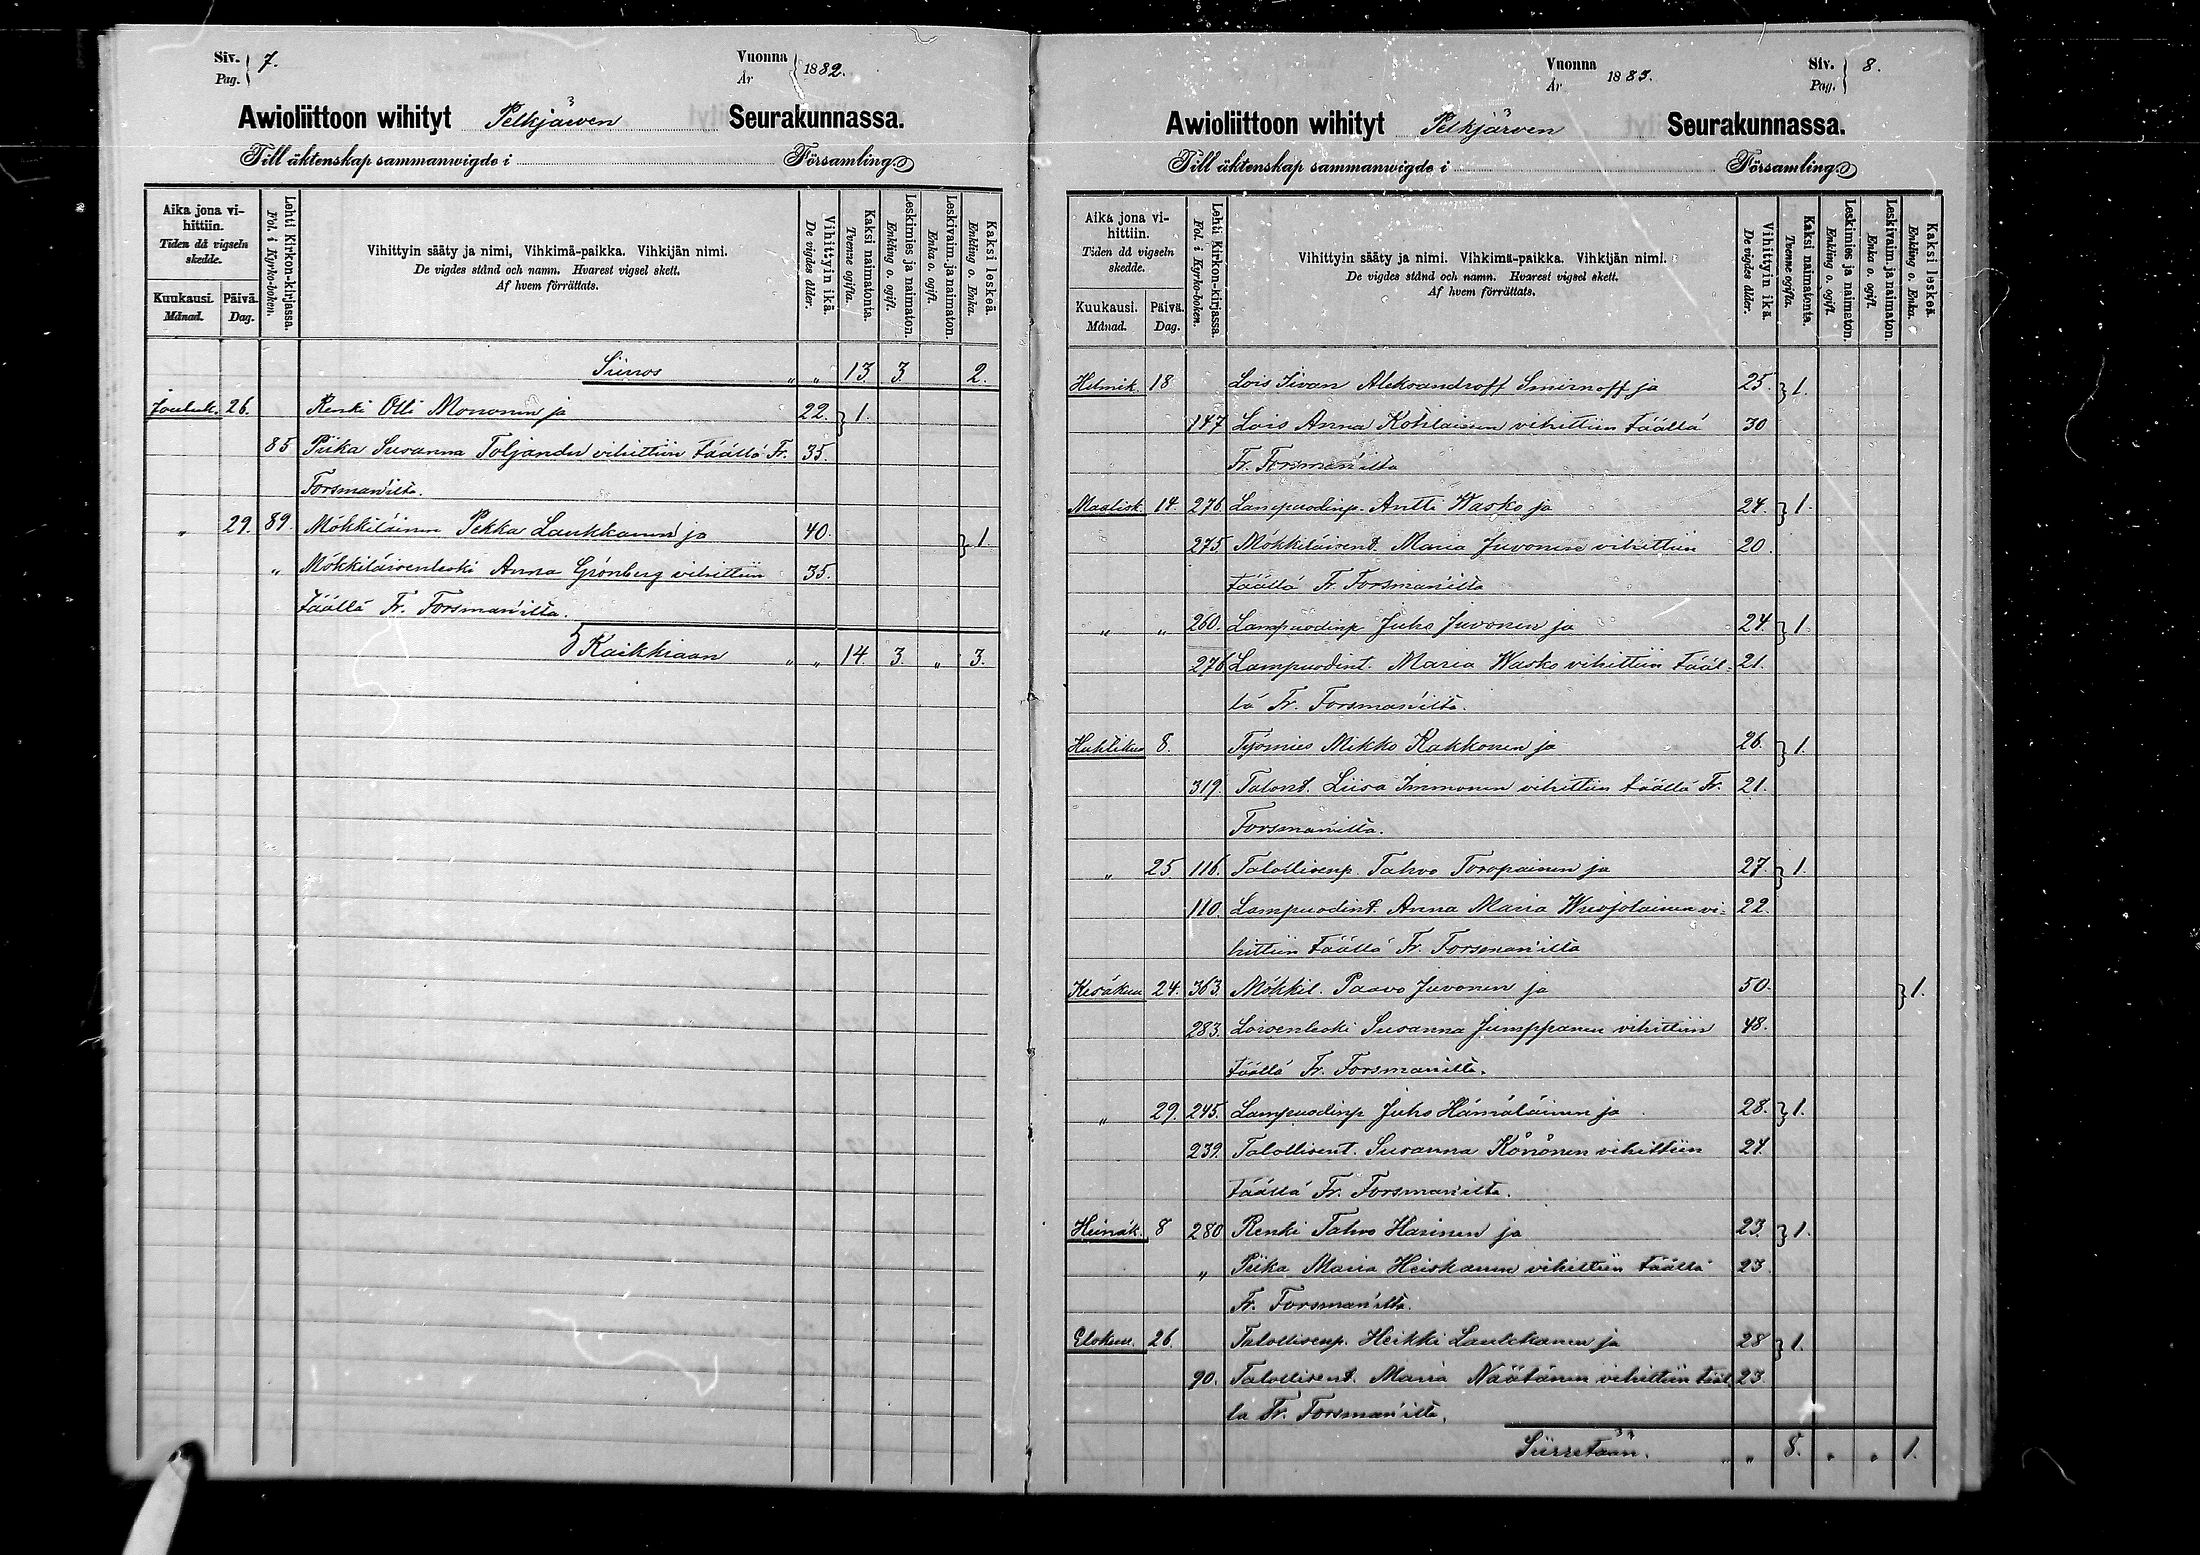 Siv. Pag. 7.
Vuonna År 1882.
Awioliittoon wihityt Pelkjäwen Seurakunnassa.
Till äktenskap sammanwigde i Församling.
Aika jona vihittiin. Tiden då vigseln skedde.
Kuukausi. Månad.
Päivä. Dag.
Lehti Kirkon-kirjassa. Fol. i Kyrko-boken.
Vihittyin sääty ja nimi, Vihkimä-paikka. Vihkijän nimi.
De vigdes stånd och namn. Hvarest vigsel skett.
Af hvem förrättats.
Vihittyin ikä. De vigdes ålder.
Kaksi naimatonta. Tvenne ogifta.
Leskimies ja naimaton. Enkling o. ogift.
Leskivaim. ja naimaton. Enka o. ogift.
Kaksi leskeä. Enkling o. Enka.
Siirros " " 13. 3. 2.
Jouluk. 26. Renki Olli Mononen ja 22. } 1.
85 Piika Susanna Toljander vihittiin täällä Fr. 35.
Forsman'ilta.
" 29. 89. Mökkiläinen Pekka Laukkanen ja 40. } 1.
" Mökkiläisenleski Anna Grönberg vihittiin 35.
täällä Fr. Forsman'ilta.
Kaikkiaan " " 14. 3. " 3.
Vuonna År 1883.
Siv. Pag. 8.
Awioliittoon wihityt Pelkjärven Seurakunnassa.
Till äktenskap sammanwigde i Församling.
Aika jona vihittiin. Tiden då vigseln skedde.
Kuukausi. Månad.
Päivä. Dag.
Lehti Kirkon-kirjassa. Fol. i Kyrko-boken.
Vihittyin sääty ja nimi. Vihkimä-paikka. Vihkijän nimi.
De vigdes stånd och namn. Hvarest vigsel skett.
Af hvem förrättats.
Vihittyin ikä. De vigdes ålder.
Kaksi naimatonta. Tvenne ogifta.
Leskimies ja naimaton. Enkling o. ogift.
Leskivaim. ja naimaton. Enka o. ogift.
Kaksi leskeä. Enkling o. Enka.
Helmik. 18 Lois Iivan Aleksandroff Smirnoff ja 25. } 1.
147 Lois Anna Kohlainen vihittiin täällä 30
Fr. Forsman'ilta
Maalisk. 14. 276. Lampuodinp. Antti Wasko ja 24. } 1.
275. Mökkiläisent. Maria Juvonen vihittiin 20.
täällä Fr. Forsman'ilta
" " 260. Lampuodinp Juho Juvonen ja 24. } 1.
276 Lampuodint. Maria Wasko vihittiin tääl- 21.
lä Fr. Forsman'ilta.
Huhtikuu 8. Työmies Mikko Kakkonen ja 26. } 1.
319. Talont. Liisa Immonen vihittiin täällä Fr. 21.
Forsman'ilta.
" 25 116. Talollisenp. Tahvo Toropainen ja 27. } 1.
110. Lampuodint. Anna Maria Wuojolainen vi- 22.
hittiin täällä Fr. Forsman'ilta
Kesäkuu 24. 363. Mökkil. Paavo Juvonen ja 50. } 1.
283. Loisenleski Susanna Jumppanen vihittiin 48.
täällä Fr. Forsman'ilta.
" 29. 245. Lampuodinp Juho Hämäläinen ja 28. } 1.
239. Talollisent. Susanna Könönen vihittiin 24.
täällä Fr. Forsman'ilta.
Heinäk. 8 280 Renki Tahvo Harinen ja 23. } 1.
" Piika Maria Heiskanen vihittiin täällä 23.
Fr. Forsman'ilta.
Elokuu. 26. Talollisenp. Heikki Laukkanen ja 28 } 1.
90. Talollisent. Maria Näätänen vihittiin tääl- 23.
lä Fr. Forsman'ilta.
Siirretään. " " 8. " " 1.